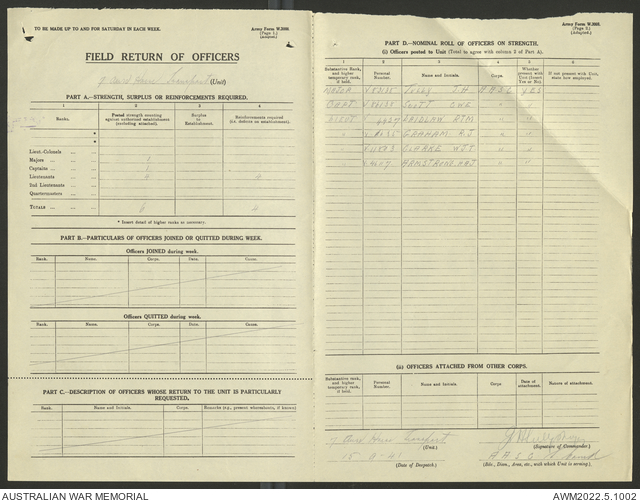 TO BE MADE UP TO AND FOR SATURDAY IN EACH WEEK.
Army Form W.3008.
(Page 1.)
(Adapted.)
FIELD RETURN OF OFFICERS
(Unit)
PART A.—STRENGTH, SURPLUS OR REINFORCEMENTS REQUIRED.
1 2 3 4
Ranks.
Posted strength counting against authorized establishment (excluding attached).
Surplus to Establishment.
Reinforcements required (i.e. defects on establishment).
*
*
Lieut.-Colonels ... ...
Majors ... ... 1
Captains ... ... 1
Lieutenants ... ... 4 4
2nd Lieutenants ...
Quartermasters ...
TOTALS ... ... 6 4
* Insert detail of higher ranks as necessary.
PART B.—PARTICULARS OF OFFICERS JOINED OR QUITTED DURING WEEK.
Officers JOINED during week.
Rank. Name. Corps. Date. Cause.
Officers QUITTED during week.
Rank. Name. Corps. Date. Cause.
PART C.—DESCRIPTION OF OFFICERS WHOSE RETURN TO THE UNIT IS PARTICULARLY REQUESTED.
Rank. Name and Initials. Corps. Remarks (e.g., present whereabouts, if known)
Army Form W.3008.
(Page 2.)
(Adapted.)
PART D.—NOMINAL ROLL OF OFFICERS ON STRENGTH.
(i) Officers posted to Unit (Total to agree with column 2 of Part A).
1 2 3 4 5 6
Substantive Rank, and higher temporary rank, if held.
Personal Number.
Name and Initials.
Corps.
Whether present with Unit (Insert Yes or No).
If not present with Unit, state how employed.
MAJOR J.H. A.A.S.C. YES
CAPT SCOTT " "
LIEUT LAIDLAW RTM " "
" GRAHAM. R.J " "
" CLARKE WJT " "
" ARMSTRONG " "
(ii) OFFICERS ATTACHED FROM OTHER CORPS.
Substantive rank, and higher temporary rank, if held.
Personal Number.
Name and Initials.
Corps
Date of attachment.
Nature of attachment.
(Unit.)
(Signature of Commander.)
(Date of Despatch.)
A A S C
(Bde., Divn., Area, etc., with which Unit is serving.)
AUSTRALIAN WAR MEMORIAL
AWM2022.5.1002